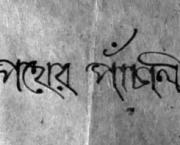 পথের পাঁচালি